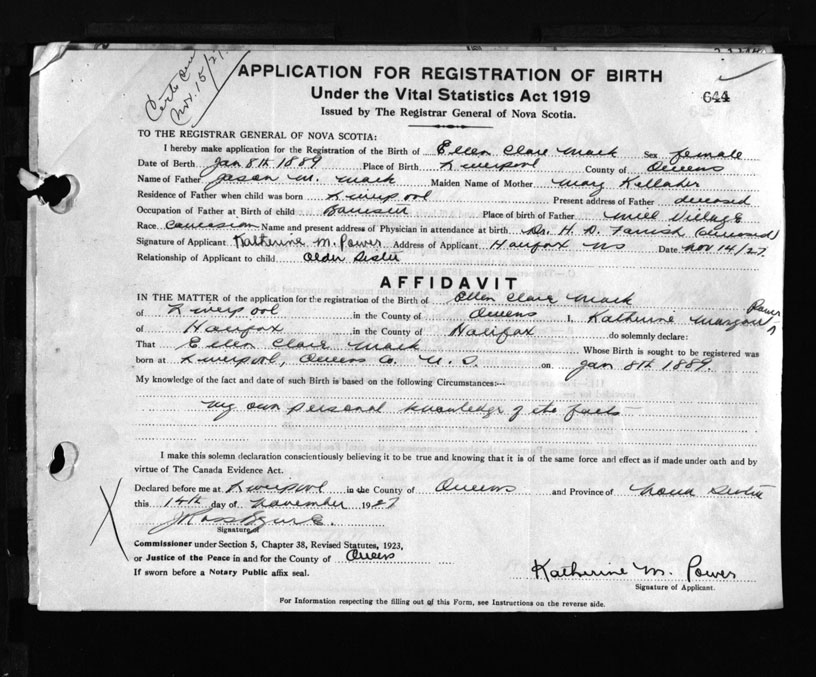 Nov. 15/27.
APPLICATION FOR REGISTRATION OF BIRTH
Under the Vital Statistics Act 1919
644
Issued by The Registrar General of Nova Scotia.
TO THE REGISTRAR GENERAL OF NOVA SCOTIA:
I hereby make application for the Registration of the Birth of Ellen Clare Mack Sex female
Date of Birth Jan 8th 1889 Place of Birth Liverpool County of Queens
Name of Father Jason M. Mack Maiden Name of Mother Mary Kellaher
Residence of Father when child was born Liverpool Present address of Father deceased
Occupation of Father at Birth of child Barrister Place of birth of Father Mill Village
Race Caucasian Name and present address of Physician in attendance at birth Dr. H. D. Farish (deceased)
Signature of Applicant Katherine M. Power Address of Applicant Halifax NS Date Nov 14/27.
Relationship of Applicant to child Older Sister
AFFIDAVIT
IN THE MATTER of the application for the registration of the Birth of Ellen Clare Mack
of Liverpool in the County of Queens I, Katherine Power
of Halifax in the County of Halifax do solemnly declare:
That Ellen Clare Mack Whose Birth is sought to be registered was
born at Liverpool, Queens Co. N. S. on Jan 8th 1889.
My knowledge of the fact and date of such Birth is based on the following Circumstances:—
My own personal knowledge of the facts
I make this solemn declaration conscientiously believing it to be true and knowing that it is of the same force and effect as if made under oath and by
virtue of The Canada Evidence Act.
Declared before me at Liverpool in the County of Queens and Province of Nova Scotia
this 14th day of November 1927
Signature of
Commissioner under Section 5, Chapter 38, Revised Statutes, 1923,
or Justice of the Peace in and for the County of Queens
If sworn before a Notary Public affix seal.
Katherine M. Power
Signature of Applicant.
For Information respecting the filling out of this Form, see Instructions on the reverse side.